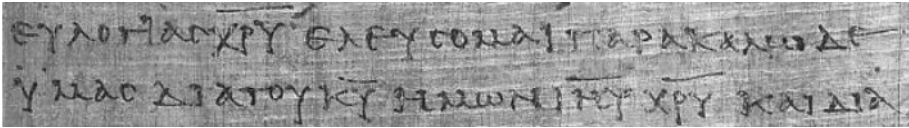 ευλογιας χρυ ελευσομαι παρακαλω δε
υμας δια του κυ ημων ιηυ χρυ και δια